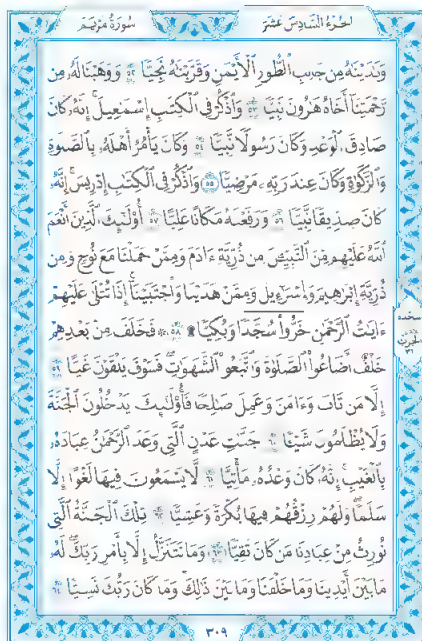 الجزء السادس عشر
سورة مريم
وَنَٰدَيْنَٰهُ مِن جَانِبِ ٱلطُّورِ ٱلْأَيْمَنِ وَقَرَّبْنَٰهُ نَجِيًّا ٥٢ وَوَهَبْنَا لَهُۥ مِن
رَّحْمَتِنَآ أَخَاهُ هَٰرُونَ نَبِيًّا ٥٣ وَٱذْكُرْ فِى ٱلْكِتَٰبِ إِسْمَٰعِيلَ ۚ إِنَّهُۥ كَانَ
صَادِقَ ٱلْوَعْدِ وَكَانَ رَسُولًا نَّبِيًّا ٥٤ وَكَانَ يَأْمُرُ أَهْلَهُۥ بِٱلصَّلَوٰةِ
وَٱلزَّكَوٰةِ وَكَانَ عِندَ رَبِّهِۦ مَرْضِيًّا ٥٥ وَٱذْكُرْ فِى ٱلْكِتَٰبِ إِدْرِيسَ ۚ إِنَّهُۥ
كَانَ صِدِّيقًا نَّبِيًّا ٥٦ وَرَفَعْنَٰهُ مَكَانًا عَلِيًّا ٥٧ أُو۟لَٰٓئِكَ ٱلَّذِينَ أَنْعَمَ
ٱللَّهُ عَلَيْهِم مِّنَ ٱلنَّبِيِّـۧنَ مِن ذُرِّيَّةِ ءَادَمَ وَمِمَّنْ حَمَلْنَا مَعَ نُوحٍ وَمِن
ذُرِّيَّةِ إِبْرَٰهِيمَ وَإِسْرَٰٓءِيلَ وَمِمَّنْ هَدَيْنَا وَٱجْتَبَيْنَآ ۚ إِذَا تُتْلَىٰ عَلَيْهِمْ
ءَايَٰتُ ٱلرَّحْمَٰنِ خَرُّوا۟ سُجَّدًا وَبُكِيًّا ۩ ٥٨ فَخَلَفَ مِنۢ بَعْدِهِمْ
خَلْفٌ أَضَاعُوا۟ ٱلصَّلَوٰةَ وَٱتَّبَعُوا۟ ٱلشَّهَوَٰتِ ۖ فَسَوْفَ يَلْقَوْنَ غَيًّا ٥٩
إِلَّا مَن تَابَ وَءَامَنَ وَعَمِلَ صَٰلِحًا فَأُو۟لَٰٓئِكَ يَدْخُلُونَ ٱلْجَنَّةَ
وَلَا يُظْلَمُونَ شَيْـًٔا ٦٠ جَنَّٰتِ عَدْنٍ ٱلَّتِى وَعَدَ ٱلرَّحْمَٰنُ عِبَادَهُۥ
بِٱلْغَيْبِ ۚ إِنَّهُۥ كَانَ وَعْدُهُۥ مَأْتِيًّا ٦١ لَّا يَسْمَعُونَ فِيهَا لَغْوًا إِلَّا
سَلَٰمًا ۖ وَلَهُمْ رِزْقُهُمْ فِيهَا بُكْرَةً وَعَشِيًّا ٦٢ تِلْكَ ٱلْجَنَّةُ ٱلَّتِى
نُورِثُ مِنْ عِبَادِنَا مَن كَانَ تَقِيًّا ٦٣ وَمَا نَتَنَزَّلُ إِلَّا بِأَمْرِ رَبِّكَ ۖ لَهُۥ
مَا بَيْنَ أَيْدِينَا وَمَا خَلْفَنَا وَمَا بَيْنَ ذَٰلِكَ ۚ وَمَا كَانَ رَبُّكَ نَسِيًّا ٦٤
سجدة
الحزب
٣١
٣٠٩